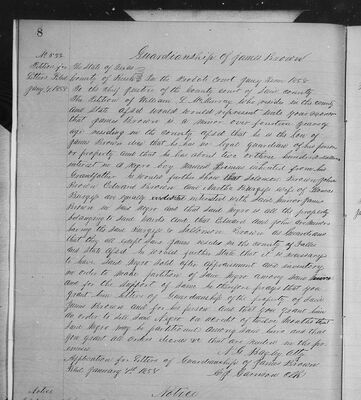 8
Guardianship of James Brown
No 533
Petition for The State of Texas
Letters Filed County of In the Probate Court Jany Term 1858
Jany 4 1858 To the chief Justice of the County court of said county
The Petition of William D. McMurray who resides in the county
and State afsd would represent unto your Honor
that James Brown is a minor over fourteen years of
age residing in the county afsd that he is the son of
James Brown decd that he has no legal guardian of his person
or property and that he has about two or three hundred
interest in a Negro boy named inherited from his
Grandfather he would further show that Solomon Brown John
Brown Edward Brown and Martha wife of James
are equally interested with said minor James
Brown in said Negro and that said Negro is all the property
belonging to said and that Edward and John are minors
having the said and Solomon Brown as Guardians
that they all except James reside in the county of
and State afsd he would further state that it is necessary
to have said Negro sold after Appraisment and inventory
in order to make partition of said Negro among said
and for the support of same he therefore prays that you
grant him Letters of Guardianship of the property of said
James Brown and for his person and that you grant him
an order to sell said Negro on a credit of twelve months that
said Negro may be partitioned among said heirs and that
you grant all orders &c that are in the
A. G. Atty
Application for Letters of Guardianship of James Brown
Filed January 4th 1858
Clk
Notice
Notice